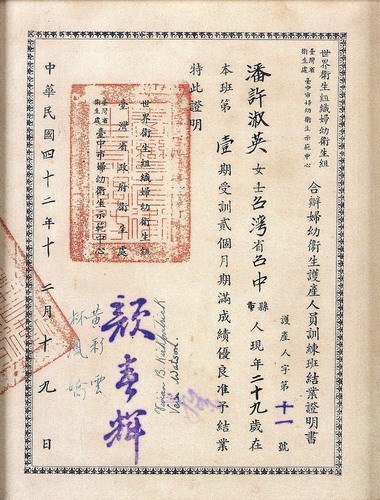 世界衛生組織婦幼衛生組
臺灣省衛生處臺中市婦幼衛生示範中心
合辦婦幼衛生護產人員訓練班結業證明書
護產人字第十一號
潘許淑英女士台灣省台中縣市人現年二十九歲在
本班第壹期受訓貳個月期滿成績優良准予結業
特此證明
世界衛生組織婦幼衛生組
臺灣省政府衛生處
臺灣省衛生處臺中市婦幼衛生示範中心
Vivian B. Kirkpatrick
Vera Watson.
顏春輝
黃彩雲
林
中華民國四十二年十二月十九日